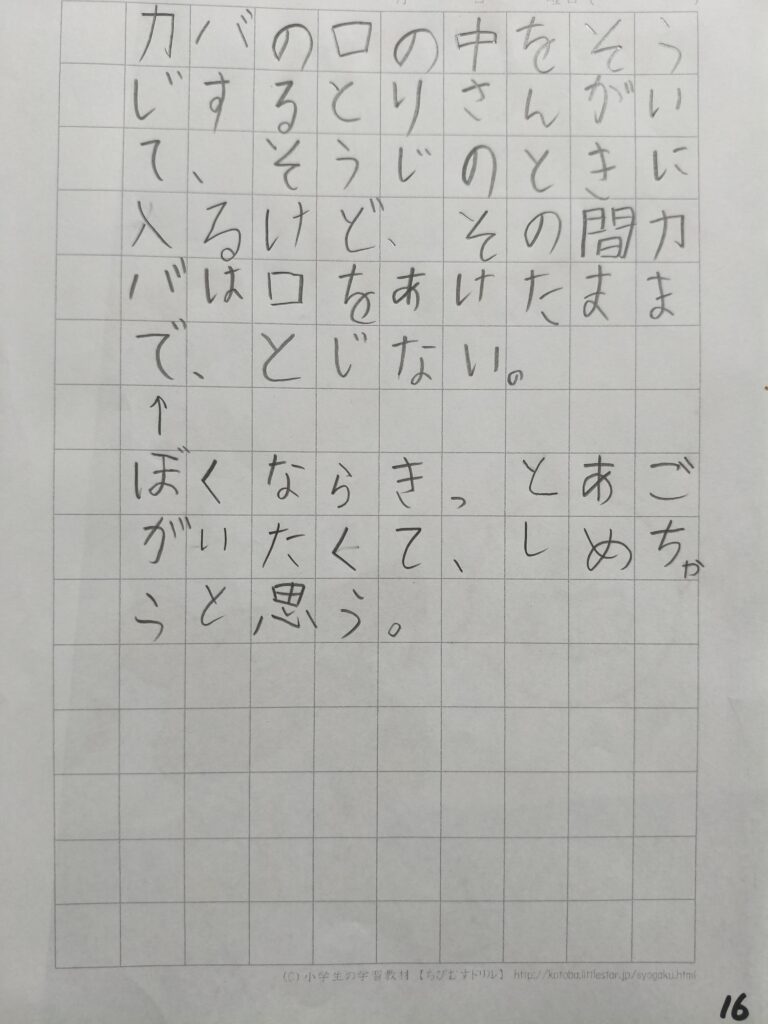 カバの口の中をそう
じするとりさんがい
て、そうじのときに
入るけど、その間カ
バは口をあけたまま
で、とじない。の
↑
ぼくならきっとあご
がいたくて、しめちゃか
らと思う。
(C)小学生の学習教材【ちびむすドリル】 http://kotoba.littlestar.jp/syogaku.html
16